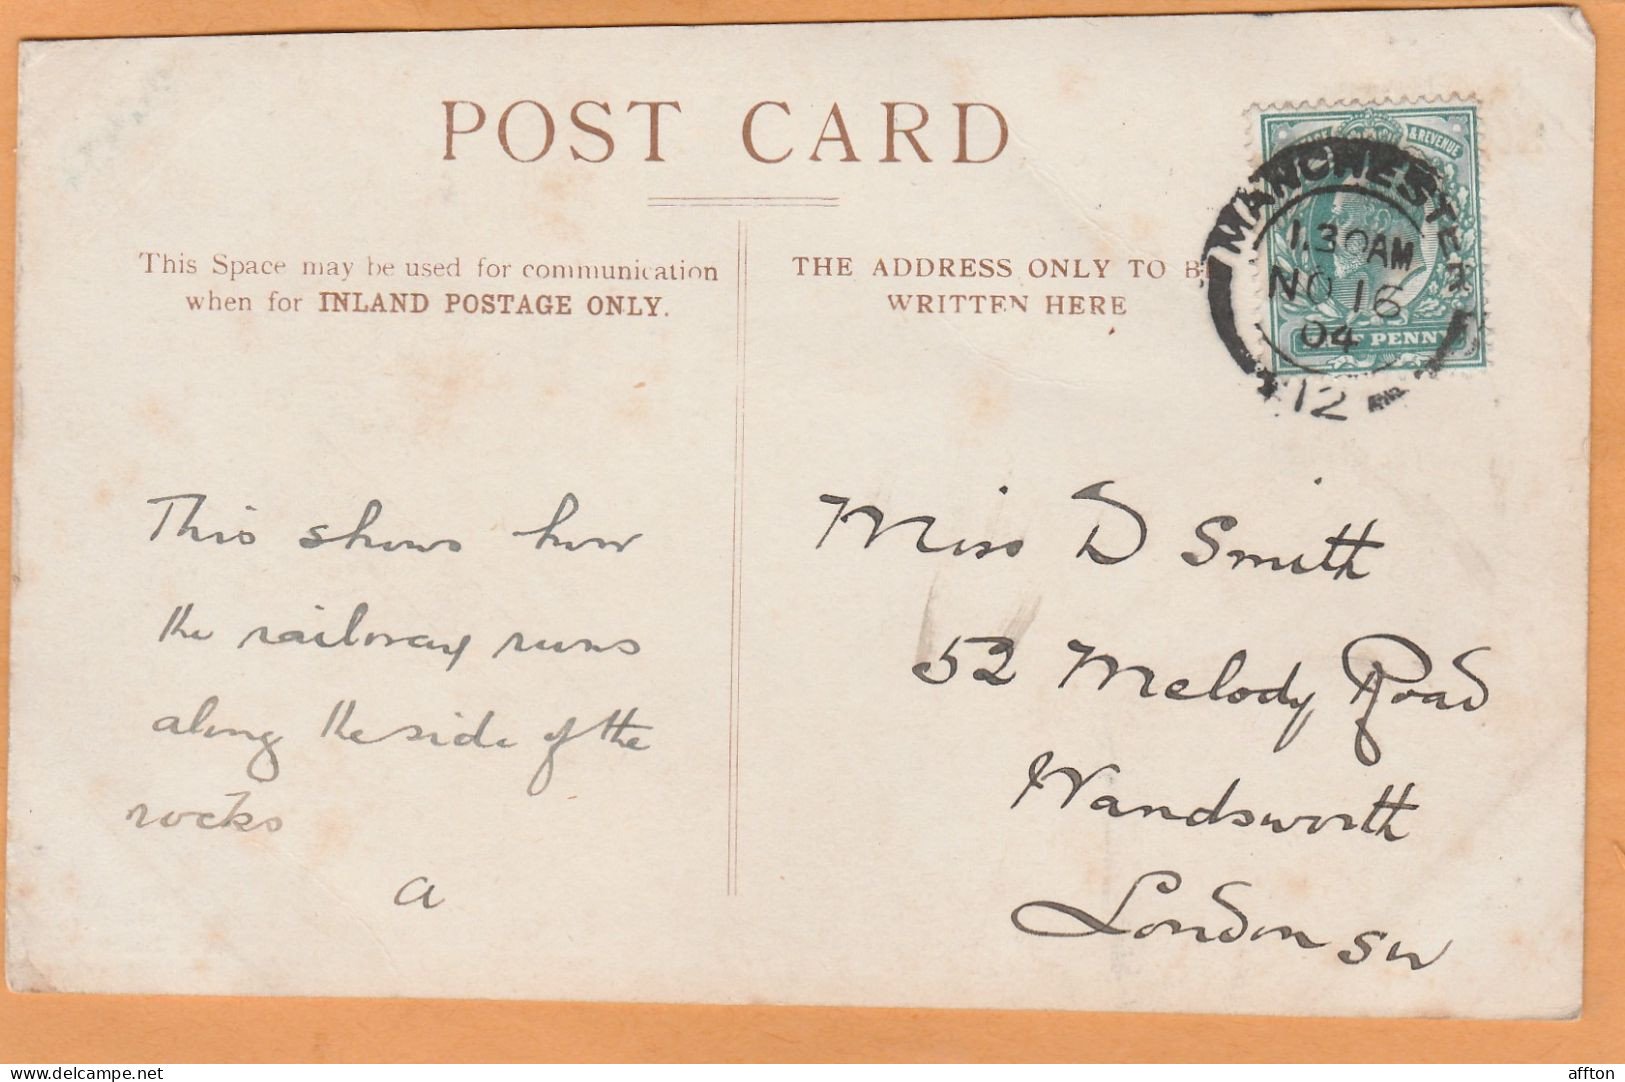 POST CARD
This Space may be used for communication
when for INLAND POSTAGE ONLY.
THE ADDRESS ONLY TO B
WRITTEN HERE
& REVENUE
MANCHESTER
1.30AM
NO 16
04
12
PENNY
This shows how
the railway runs
along the side of the
rocks
a
Miss D Smith
52 Melody Road
Wandsworth
London SW
delcampe.net
affton